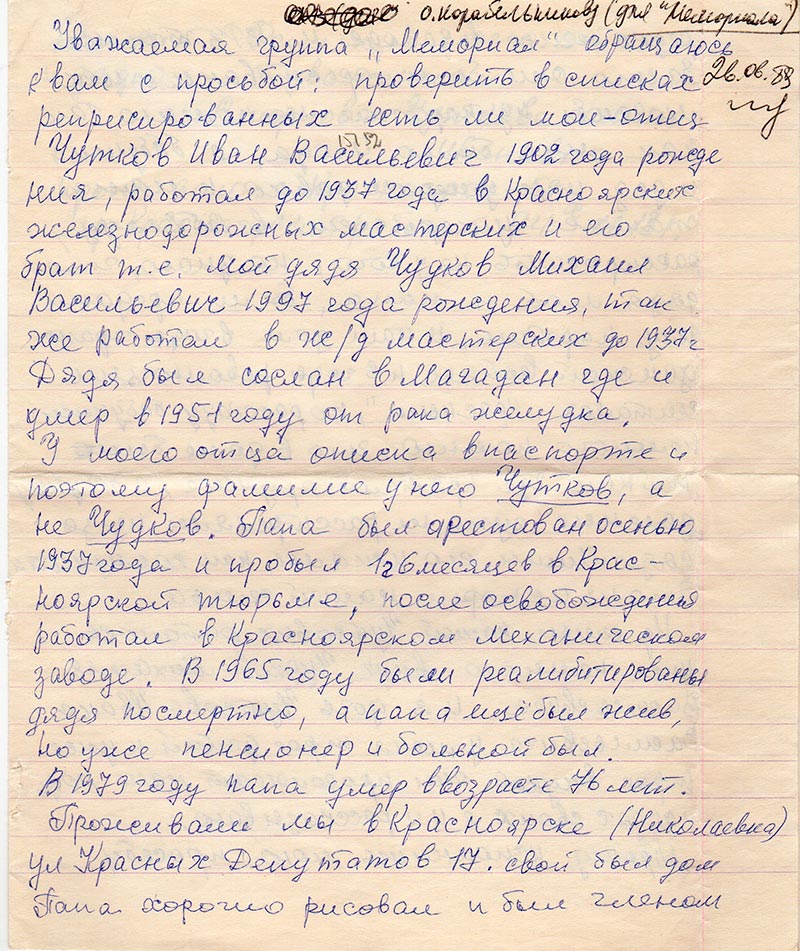 о. Корабельникову (для "Мемориала")
Уважаемая группа „Мемориал" обращаюсь
к вам с просьбой: проверить в списках
26.06.89
реприсированных есть ли мой-отец
15152
Чутков Иван Васильевич 1902 года рожде
ния, работал до 1937 года в Красноярских
железнодорожных мастерских и его
брат т.е. мой дядя Чудков Михаил
Васильевич 1997 года рождения, так
же работал в ж/д мастерских до 1937г
Дядя был сослан в Магадан где и
умер в 1951 году от рака желудка.
У моего отца описка в паспорте и
поэтому фамилие у него Чутков, а
не Чудков. Папа был арестован осенью
1937 года и пробыл 1г 6 месяцев в Крас-
ноярской тюрьме, после освобождения
работал в Красноярском механическом
заводе. В 1965 году были реалибитированы
дядя посмертно, а папа ищё был жив,
но уже пенсионер и больной был.
В 1979 году папа умер в возрасте 76 лет.
Проживали мы в Красноярске (Николаевка)
ул Красных Депутатов 17. свой был дом
Папа хорошо рисовал и был членом